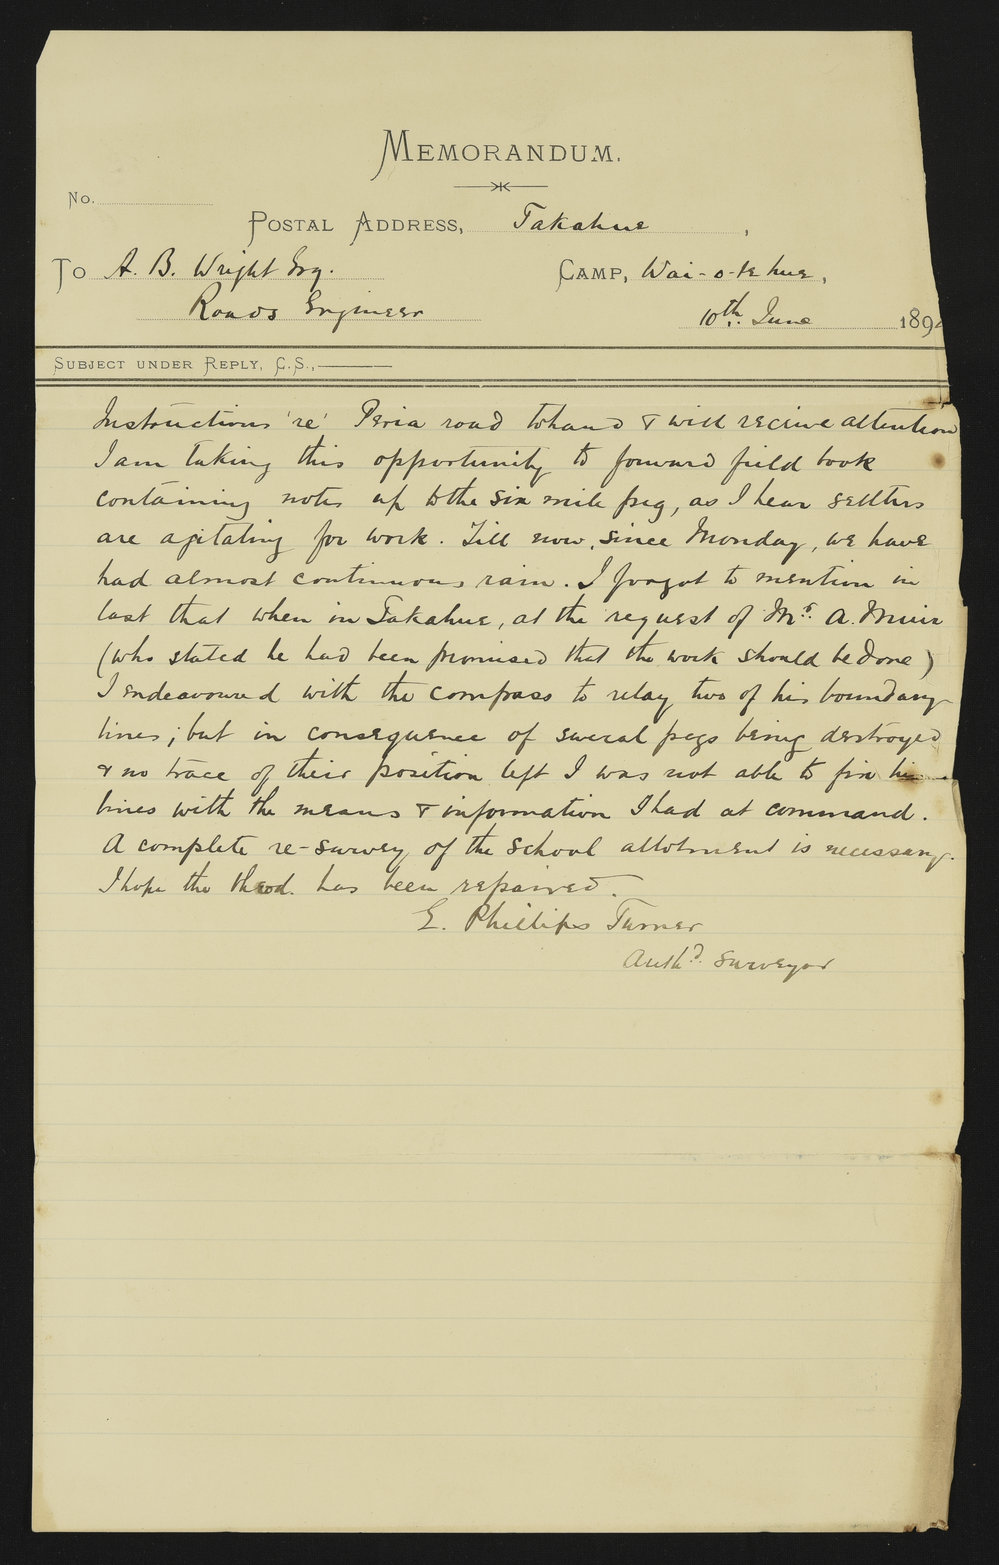 MEMORANDUM.
No.
POSTAL ADDRESS, Takahue,
To A. B. Wright Esq. CAMP, Wai-o-te hue,
Roads Engineer 10th. June 189
SUBJECT UNDER REPLY, C.S.,
Instructions 're' Peria road to hand & will receive attention
I am taking this opportunity to forward field book
containing notes up to the six mile peg, as I hear settlers
are agitating for work. Till now, since Monday, we have
had almost continuous rain. I forgot to mention in
last that when in Takahue, at the request of Mr. A. Muir
(who stated he had been promised that the work should be done)
I endeavoured with the compass to relay two of his boundary
lines; but in consequence of several pegs being destroyed
& no trace of their position left I was not able to fix his
lines with the means & information I had at command.
A complete re-survey of the school allotment is necessary.
I hope the theod. has been repaired.
E. Phillips Turner
Authd. Surveyor